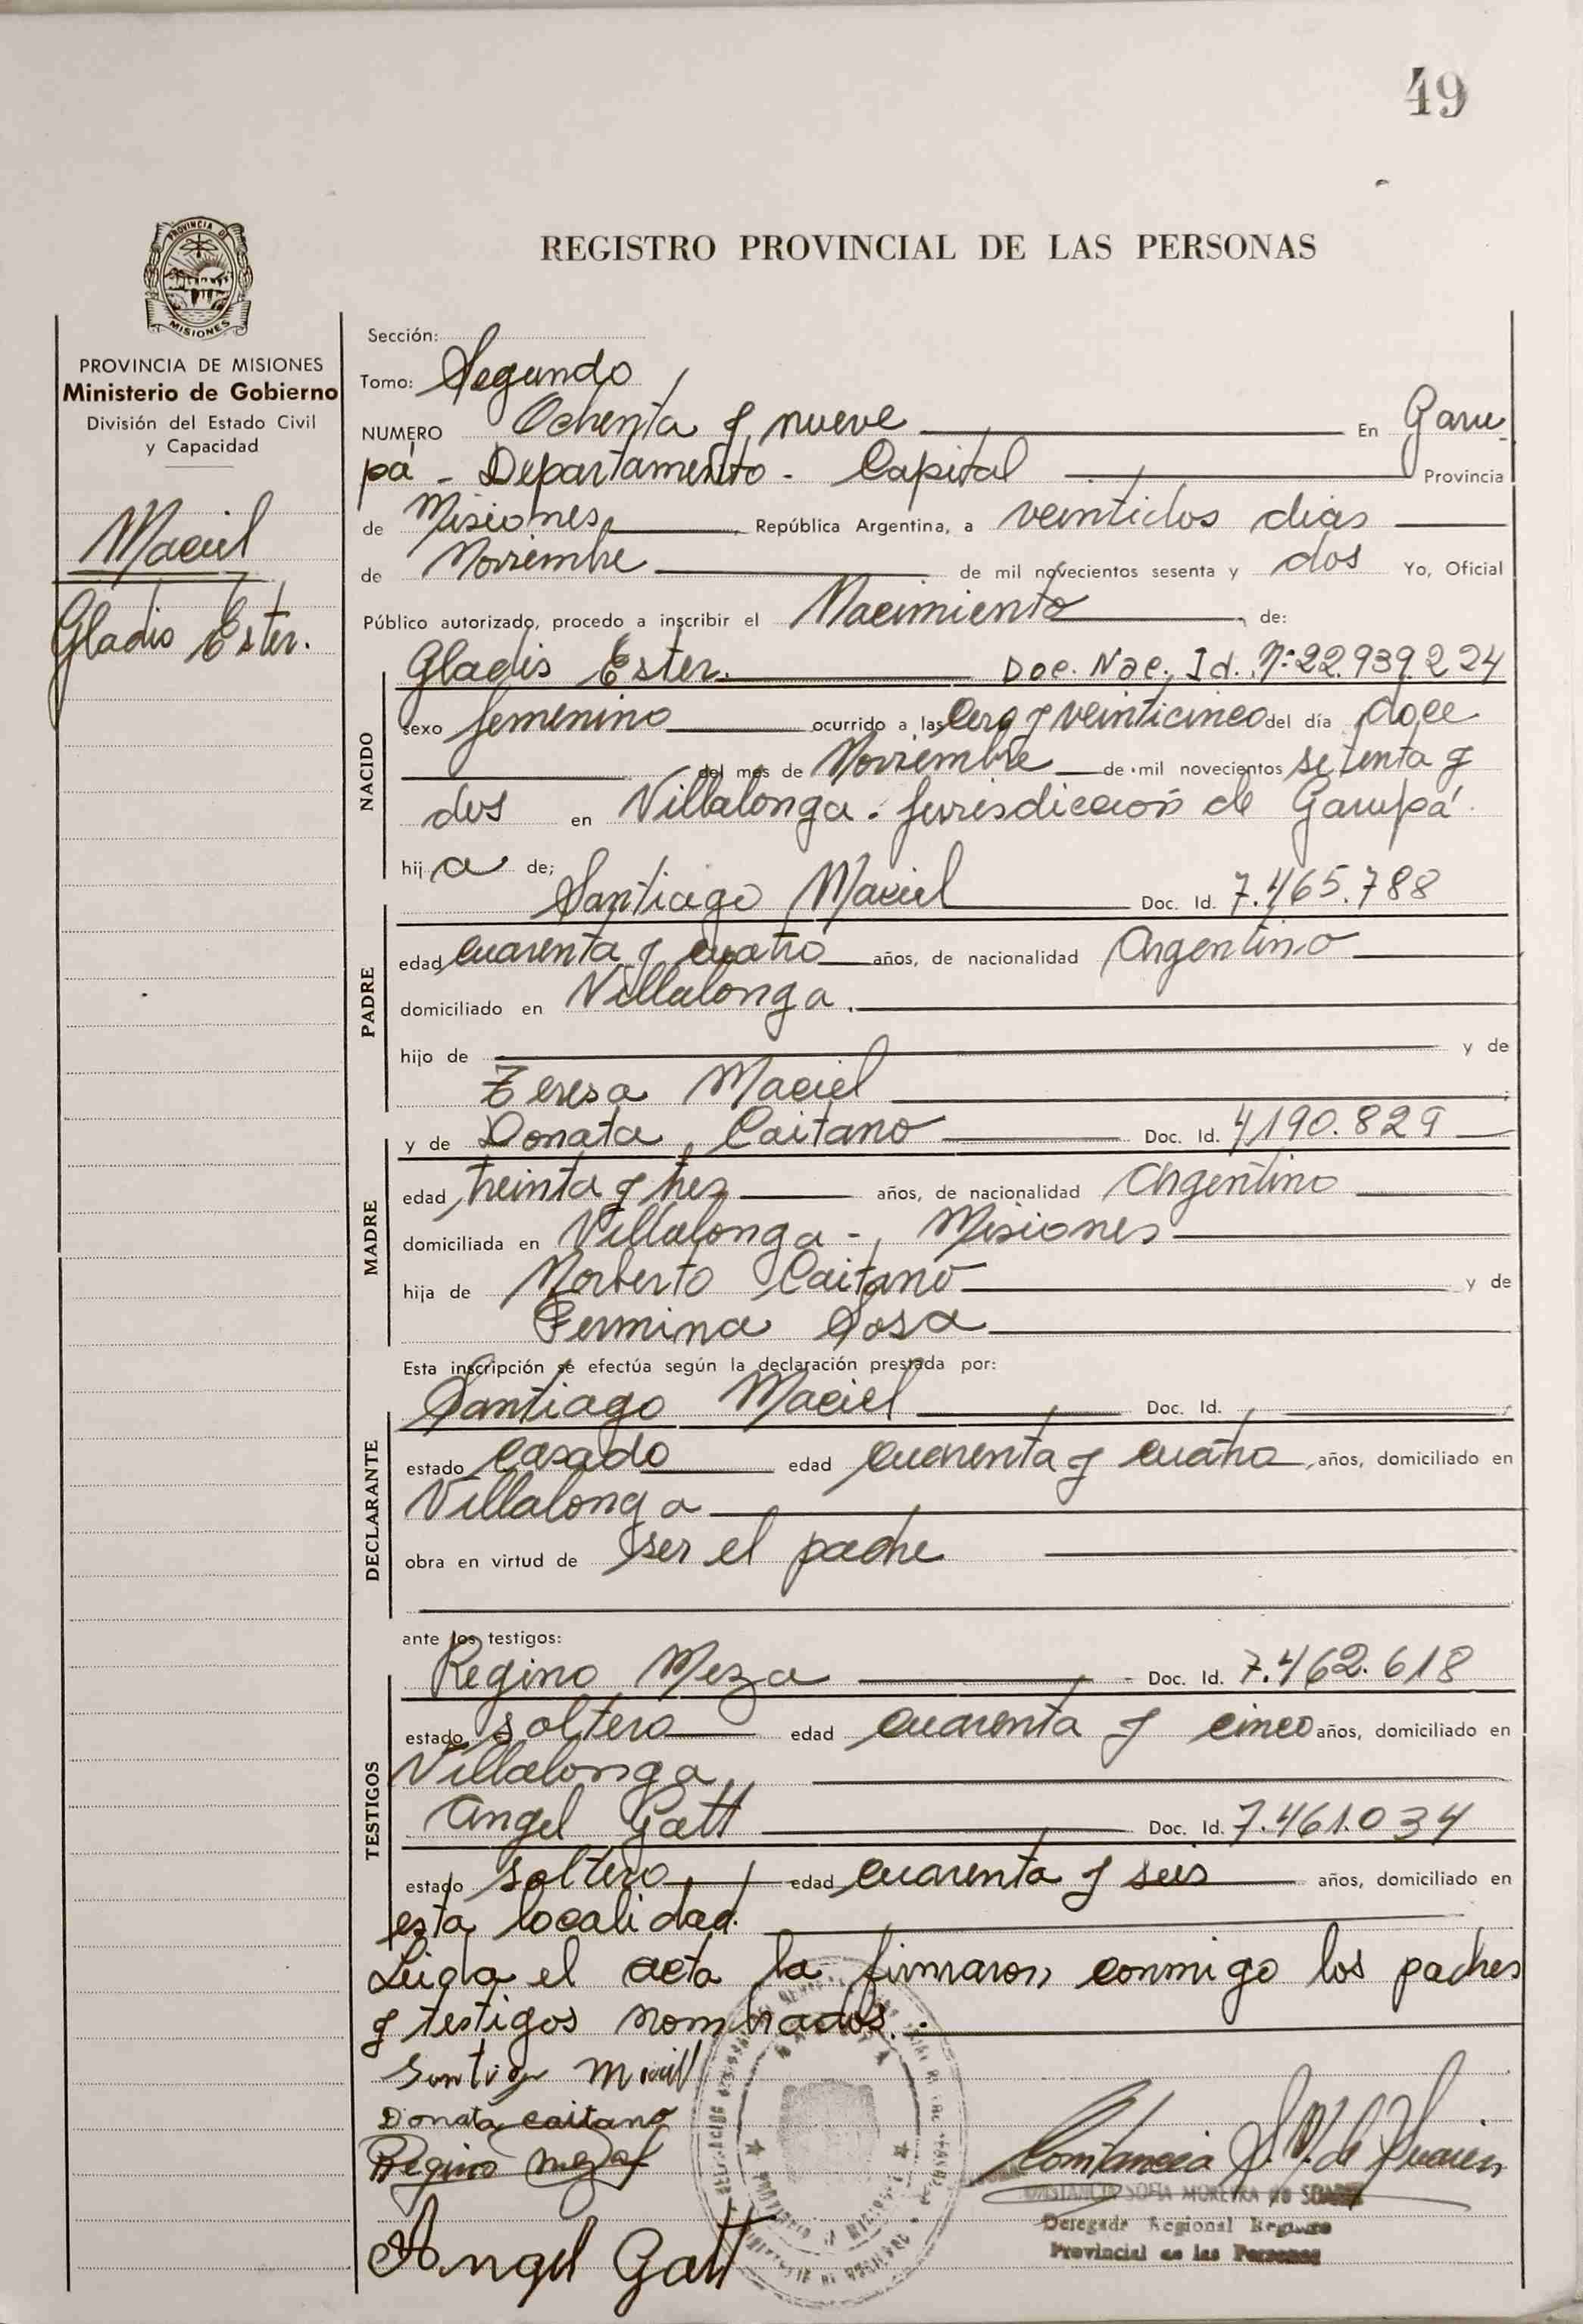 49
PROVINCIA DE
MISIONES
REGISTRO PROVINCIAL DE LAS PERSONAS
PROVINCIA DE MISIONES
Ministerio de Gobierno
División del Estado Civil
y Capacidad
Maciel
Gladis Ester.
Sección:
Tomo: Segundo
NUMERO Ochenta y nueve En Garu
pá - Departamento - Capital Provincia
de Misiones, República Argentina, a veintidos dias
de Noviembre de mil novecientos sesenta y dos Yo, Oficial
Público autorizado, procedo a inscribir el Nacimiento, de:
NACIDO
Gladis Ester. Doc. Nac. Id. Nº 22.939.224
sexo femenino ocurrido a las Cero y veinticinco del día doce
del mes de Noviembre de mil novecientos setenta y
dos en Villalonga. Jurisdiccion de Garupá.
hija de;
PADRE
Santiago Maciel Doc. Id. 7.465.788
edad cuarenta y cuatro años, de nacionalidad Argentino
domiciliado en Villalonga.
hijo de y de
Teresa Maciel
MADRE
y de Donata Caitano Doc. Id. 4190.829
edad treinta y tres años, de nacionalidad Argentino
domiciliada en Villalonga -, Misiones
hija de Norberto Caitano y de
Fermina Sosa
Esta inscripción se efectúa según la declaración prestada por:
DECLARANTE
Santiago Maciel Doc. Id.
estado casado edad cuarenta y cuatro, años, domiciliado en
Villalonga
obra en virtud de ser el padre
ante los testigos:
TESTIGOS
Regino Meza Doc. Id. 7.462.618
estado soltero edad cuarenta y cinco años, domiciliado en
Villalonga
Angel Gatt Doc. Id. 7.461.034
estado soltero edad cuarenta y seis años, domiciliado en
esta localidad.
Leida el acta la firmaron conmigo los padres
y testigos nombrados.
Donata caitano
Regino meza
Angel Gatt
Constancia S. M. de Suarez
CONSTANCIA SOFIA MOREYRA DE SUAREZ
Delegada Regional Registro
Provincial de las Personas